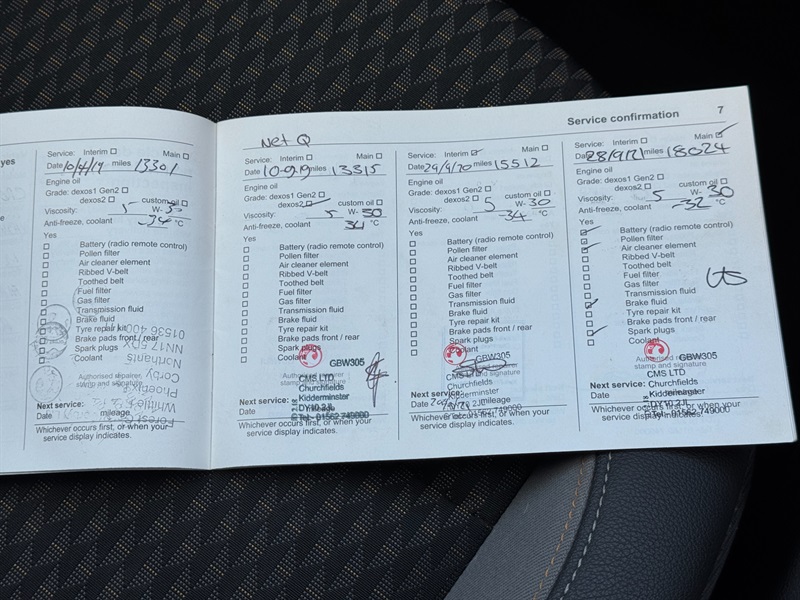 Service confirmation 7
yes
Service: Interim Main
Date 10/4/19 miles 13301
Engine oil
Grade: dexos1 Gen2
dexos2 custom oil
Viscosity: 5 W- 30
Anti-freeze, coolant -34 °C
Yes
Battery (radio remote control)
Pollen filter
Air cleaner element
Ribbed V-belt
Toothed belt
Fuel filter
Gas filter
Transmission fluid
Brake fluid
Tyre repair kit
Brake pads front / rear
Spark plugs
Coolant
01536 400
NN17 5DY
Northants
Corby
Authorised repairer,
stamp and signature
Next service:
Date mileage
Whichever occurs first, or when your
service display indicates.
Net Q
Service: Interim Main
Date 10-09-19 miles 13315
Engine oil
Grade: dexos1 Gen2
dexos2 custom oil
Viscosity: 5 W- 30
Anti-freeze, coolant 34 °C
Yes
Battery (radio remote control)
Pollen filter
Air cleaner element
Ribbed V-belt
Toothed belt
Fuel filter
Gas filter
Transmission fluid
Brake fluid
Tyre repair kit
Brake pads front / rear
Spark plugs
Coolant
GBW305
CMS LTD
Churchfields
Kidderminster
DY10 2JL
Tel- 01562 749000
Next service:
Date mileage
Whichever occurs first, or when your
service display indicates.
Service: Interim Main
Date 29/9/20 miles 15512
Engine oil
Grade: dexos1 Gen2
dexos2 custom oil
Viscosity: 5 W- 30
Anti-freeze, coolant -34 °C
Yes
Battery (radio remote control)
Pollen filter
Air cleaner element
Ribbed V-belt
Toothed belt
Fuel filter
Gas filter
Transmission fluid
Brake fluid
Tyre repair kit
Brake pads front / rear
Spark plugs
Coolant
GBW305
CMS LTD
Churchfields
Kidderminster
01562 749000
Next service:
Date mileage
Whichever occurs first, or when your
service display indicates.
Service: Interim Main
Date 28/9/21 miles 18024
Engine oil
Grade: dexos1 Gen2
dexos2 custom oil
Viscosity: 5 W- 30
Anti-freeze, coolant -32 °C
Yes
Battery (radio remote control)
Pollen filter
Air cleaner element
Ribbed V-belt
Toothed belt
Fuel filter
Gas filter
Transmission fluid
Brake fluid
Tyre repair kit
Brake pads front / rear
Spark plugs
Coolant
GBW305
Authorised repairer
stamp and signature
CMS LTD
Churchfields
Kidderminster
DY10 2JL
Tel- 01562 749000
Next service:
Date mileage
Whichever occurs first, or when your
service display indicates.